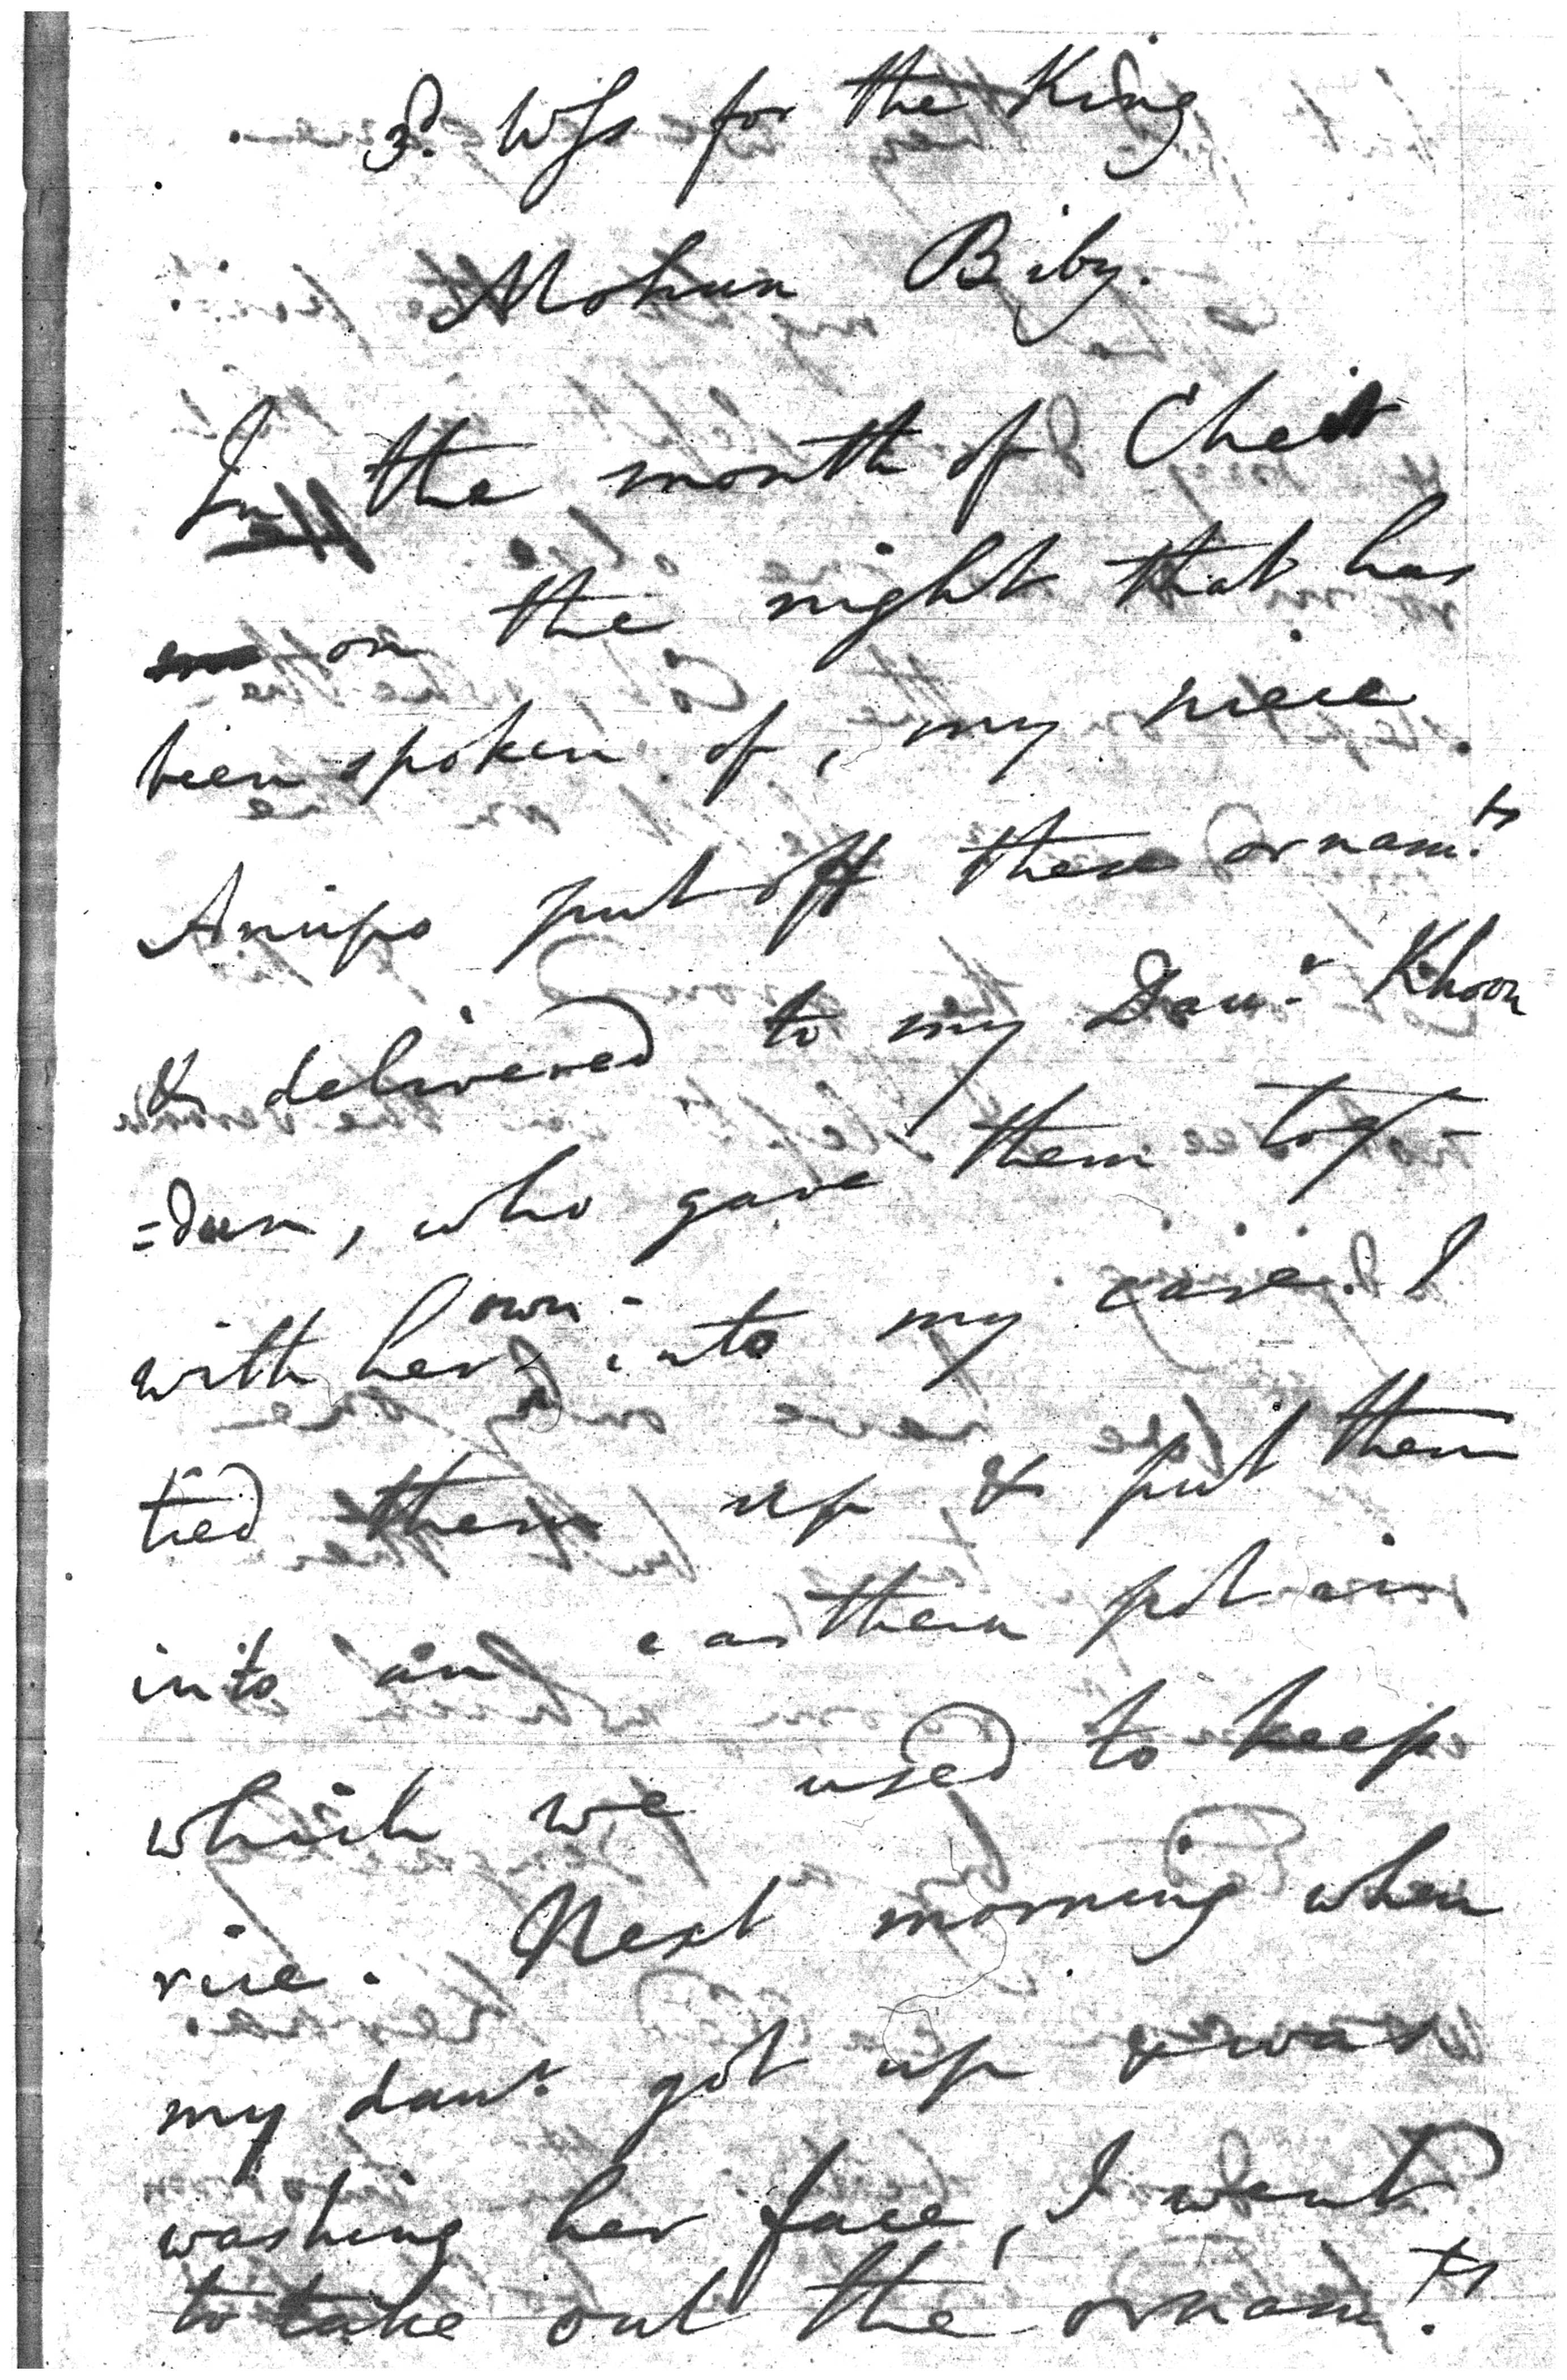 3d. Wss for the King
Mohun Biby.
In the month of Cheit
on the night that has
been spoken of, my niece
Anupo put off these ornam.ts
& delivered to my Daur. Khoon
=dun, who gave them togr
with her own into my care. I
tied them up & put them
into an earthern pot in
which we used to keep
rice. Next morning when
my daur. got up & was
washing her face, I went
to take out the ornam.ts